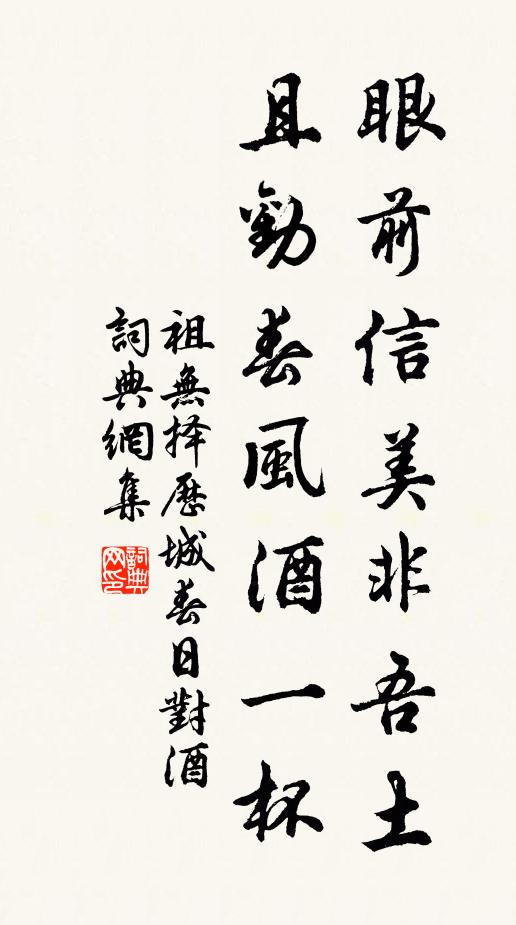 眼前信美非吾土
且勸春風酒一杯
祖無择歷城春日對酒
詞典網集
詞典网印